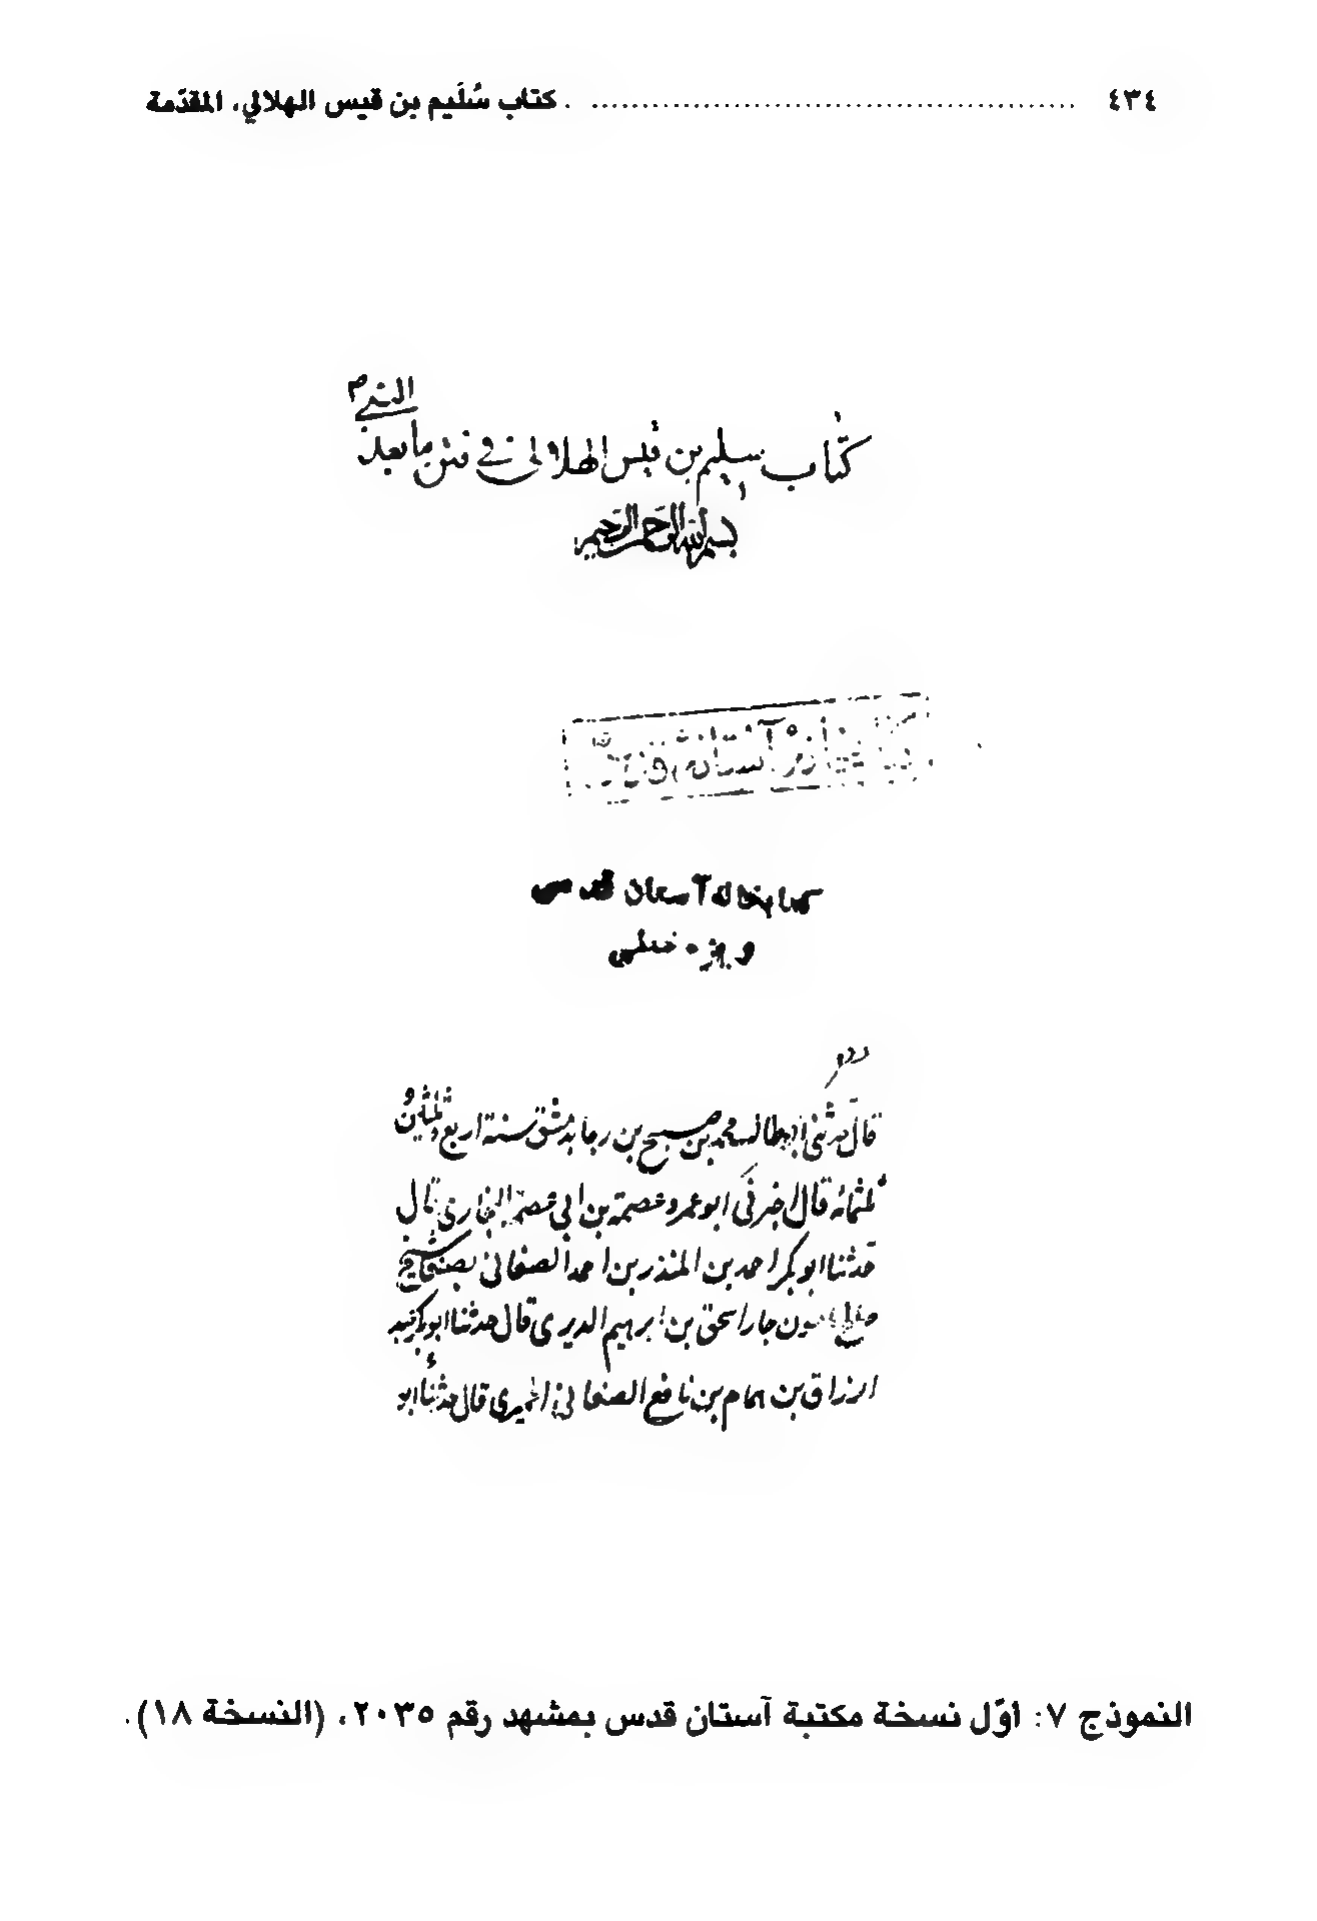 ٤٣٤ ........................................ كتاب سُلَيم بن قيس الهلالي، المقدّمة
النبي ص
كتاب سليم بن قيس الهلالى فى فتن ما بعد
بسم الله الرحمن الرحيم
كتابخانه آستان قدس
ويژه خطى
قال حدثنى ابوطالب محمد بن صبيح بن رجا بدمشق سنة اربع وثلثين
وثلثمائه قال اخبرنى ابو عمرو عصمة بن ابى عصمة البخارى قال
حدثنا ابو بكر احمد بن المنذر بن احمد الصنعانى بصنعا شيخ
صالح مامون جار اسحق بن ابرهيم الديرى قال حدثنا ابو بكر عبد
الرزاق بن همام بن نافع الصنعانى الحميرى قال حدثنا ابو
النموذج ٧: اوّل نسخة مكتبة آستان قدس بمشهد رقم ٢٠٣٥، (النسخة ١٨).